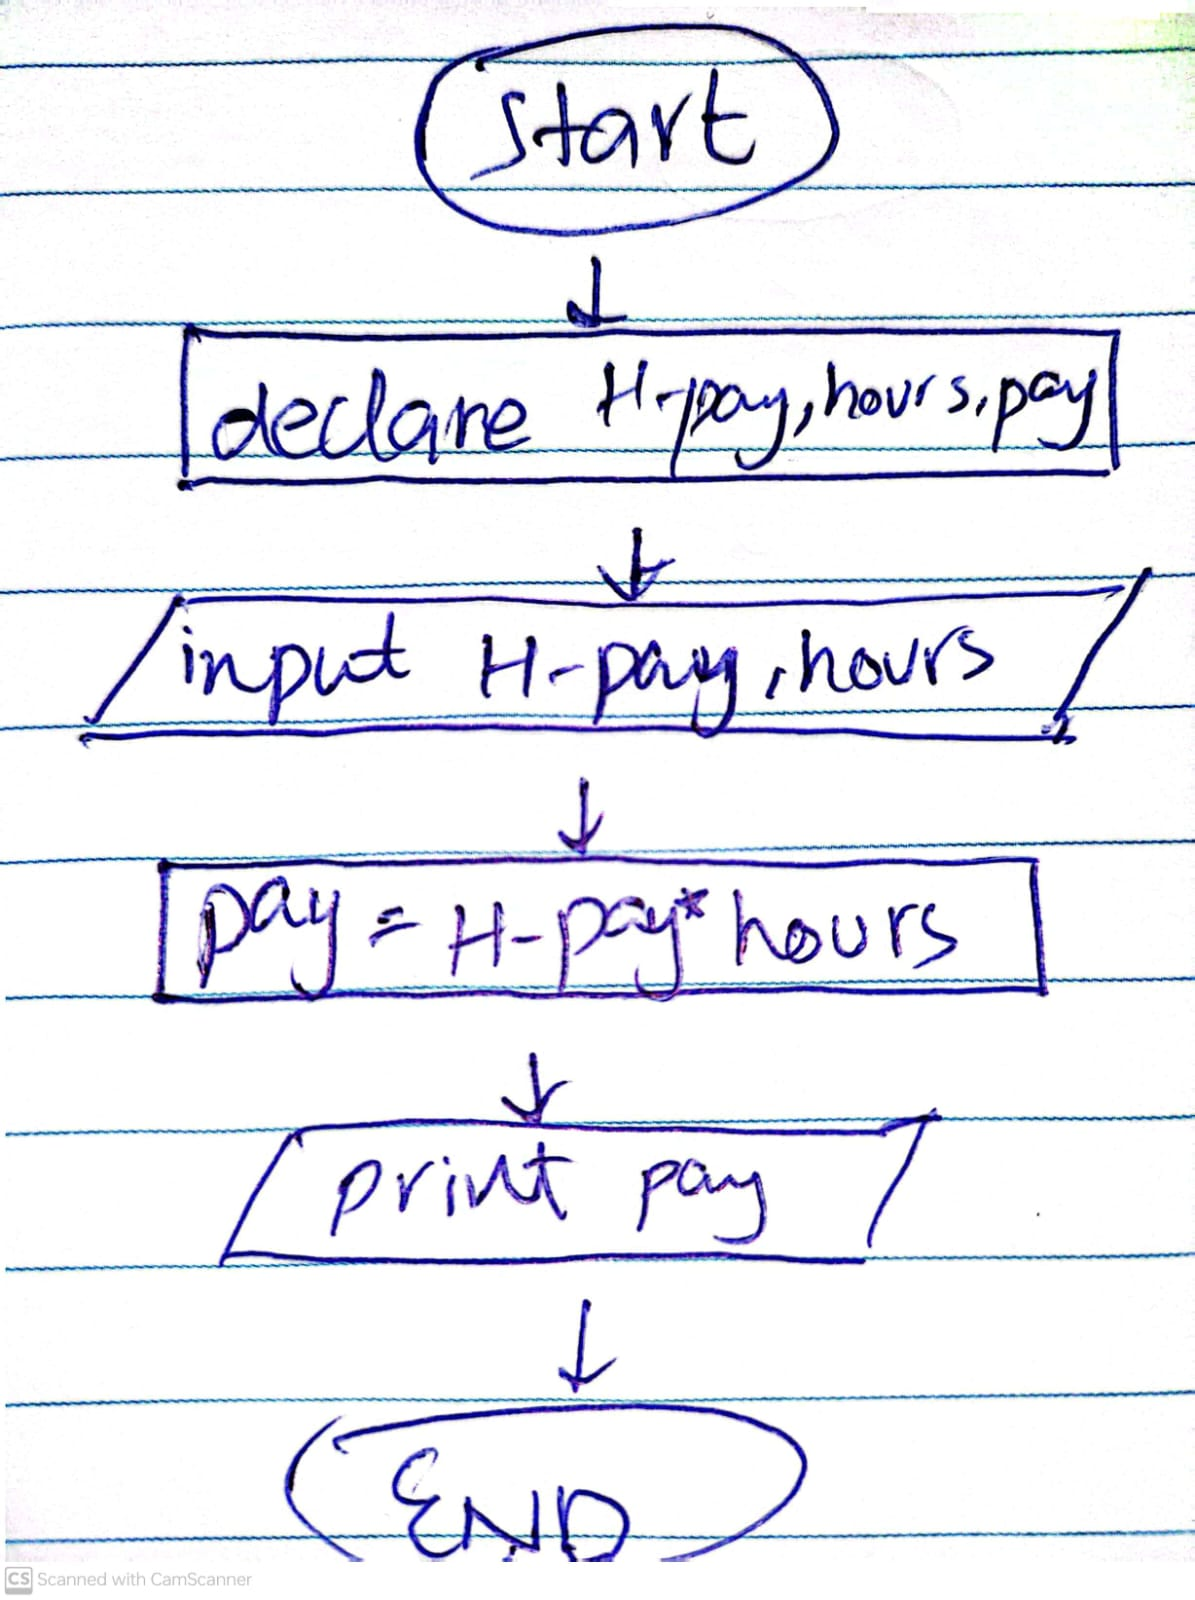 Start
declare H-pay, hours, pay
input H-pay, hours
pay = H-pay* hours
print pay
END
CS Scanned with CamScanner